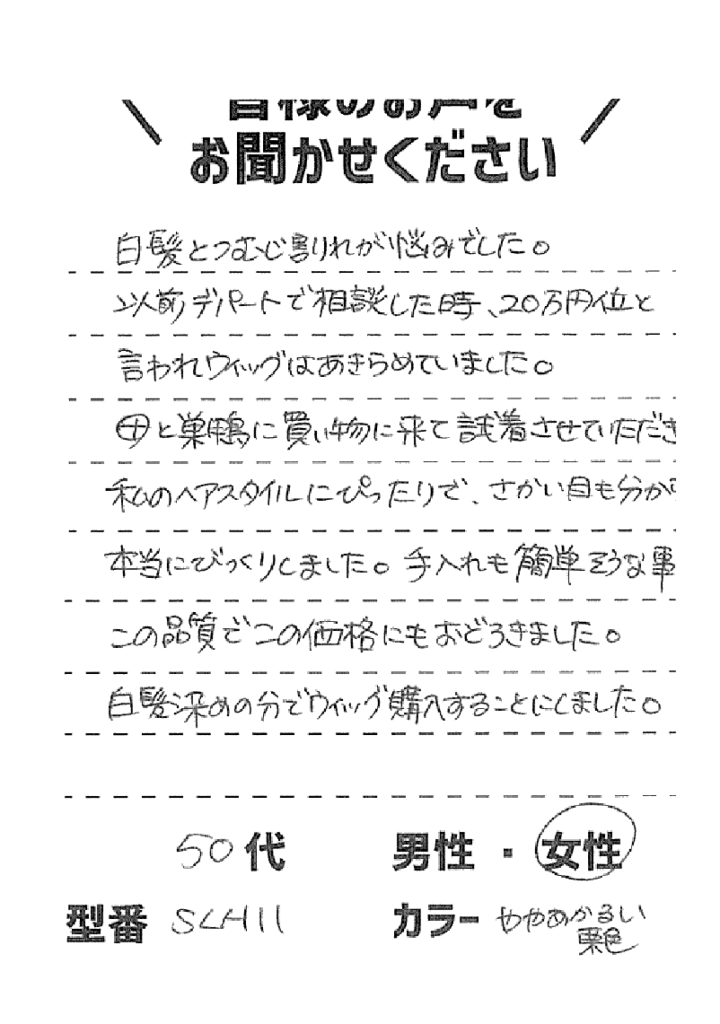 皆様のお声を
お聞かせください
白髪とつむじ割れが悩みでした。
以前デパートで相談した時、20万円位と
言われウィッグはあきらめていました。
と巣鴨に買い物に来て試着させていただき
私のヘアスタイルにぴったりで、さかい目も分か
本当にびっくりしました。手入れも簡単そうな事
この品質でこの価格にもおどろきました。
白髪染めの分でウィッグ購入することにしました。
50代 男性・女性
型番 SLH11 カラー ややあかるい
栗色